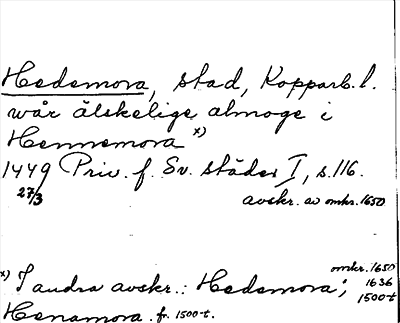 Hedemora, stad, Kopparb. l.
wår älskelige almoge i
Hennemora x)
1449 Priv. f. Sv. städer I, s. 116.
27/3 avskr. av omkr. 1650
x) I andra avskr.: Hedemora; omkr. 1650 1636 1500-t
Henamora. fr. 1500-t.